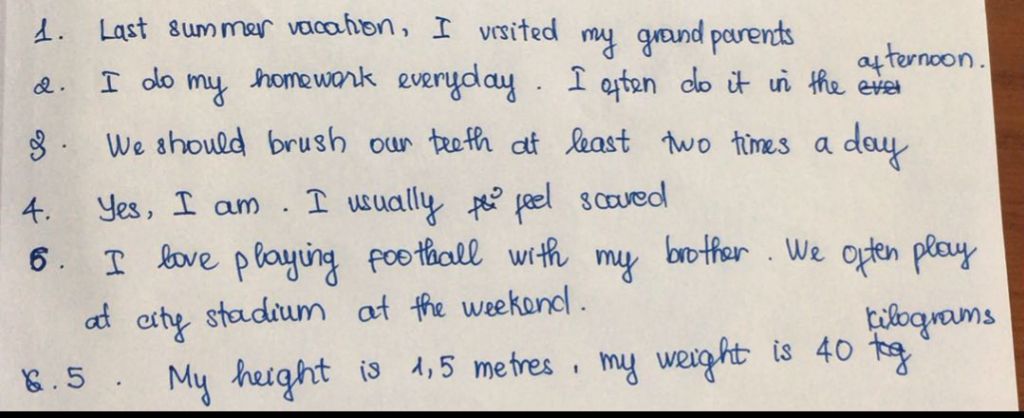 1. Last summer vacation, I visited my grandparents
afternoon.
2. I do my homework everyday. I often do it in the eve
3. We should brush our teeth at least two times a day
4. Yes, I am. I usually feel scared
6. I love playing football with my brother. We often play
at city stadium at the weekend.
kilograms
5. My height is 1,5 metres, my weight is 40 kg